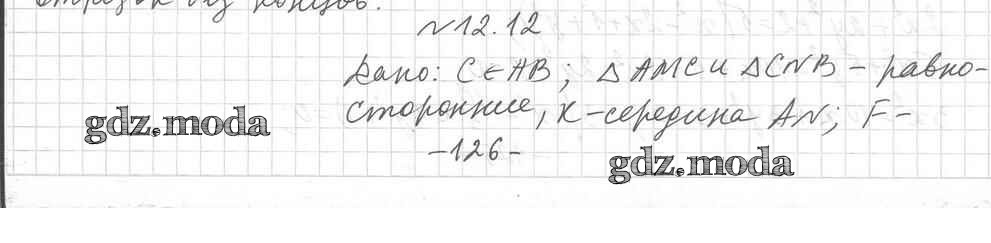 отрезок без концов.
№12.12
Дано: C∈AB; △AMC и △CNB - равно-
сторонние, K-середина AN; F-
gdz.moda
-126-
gdz.moda